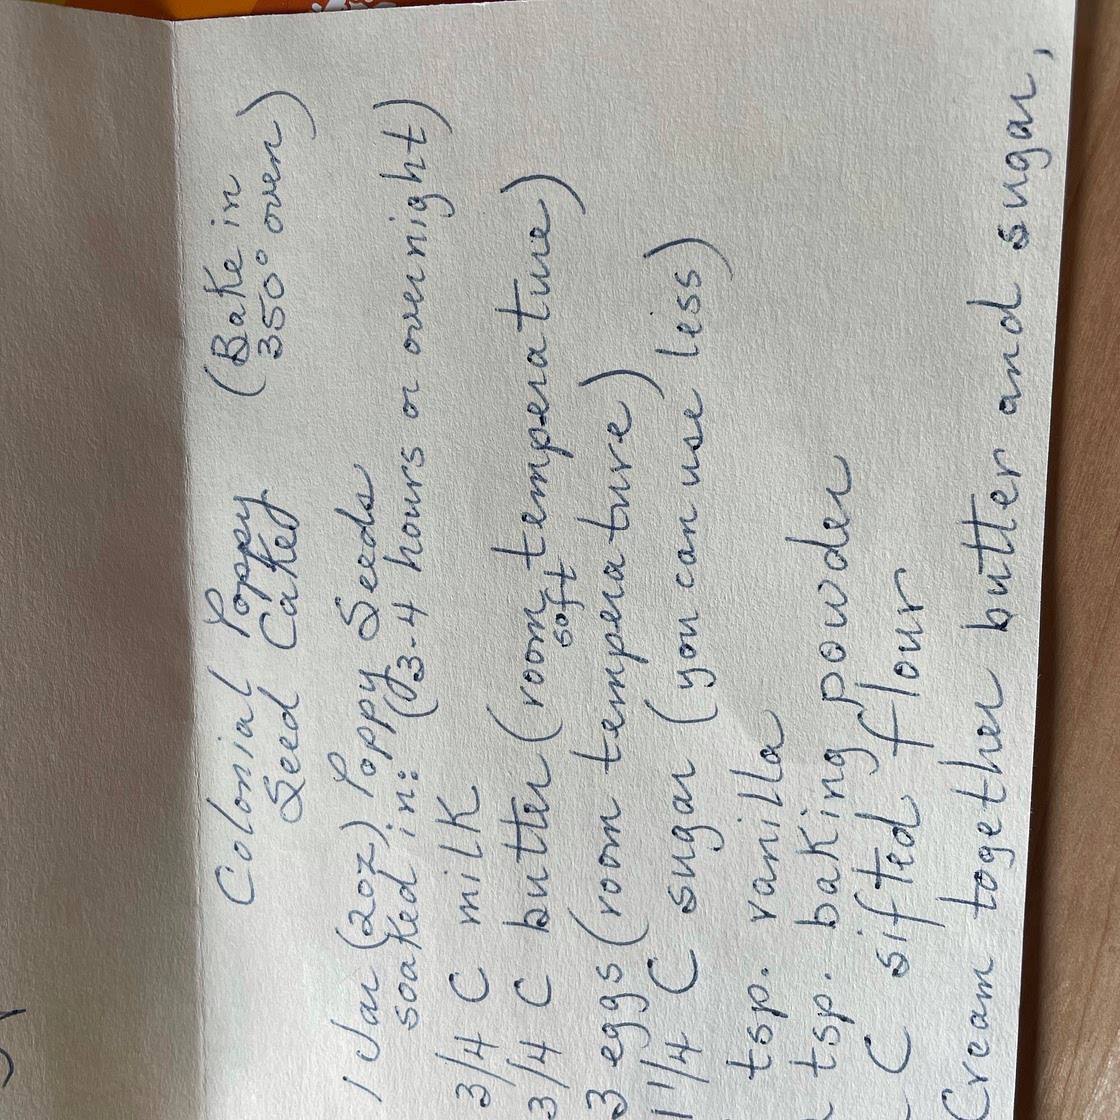 Colonial Poppy (Bake in
Seed Cakes 350° oven)
1 Jar (2oz) Poppy Seeds
soaked in: (3-4 hours or overnight)
3/4 C milk
3/4 C butter (room temperature)
soft
3 eggs (room temperature)
1 1/4 C sugar (you can use less)
tsp. vanilla
tsp. baking powder
C sifted flour
Cream together butter and sugar,